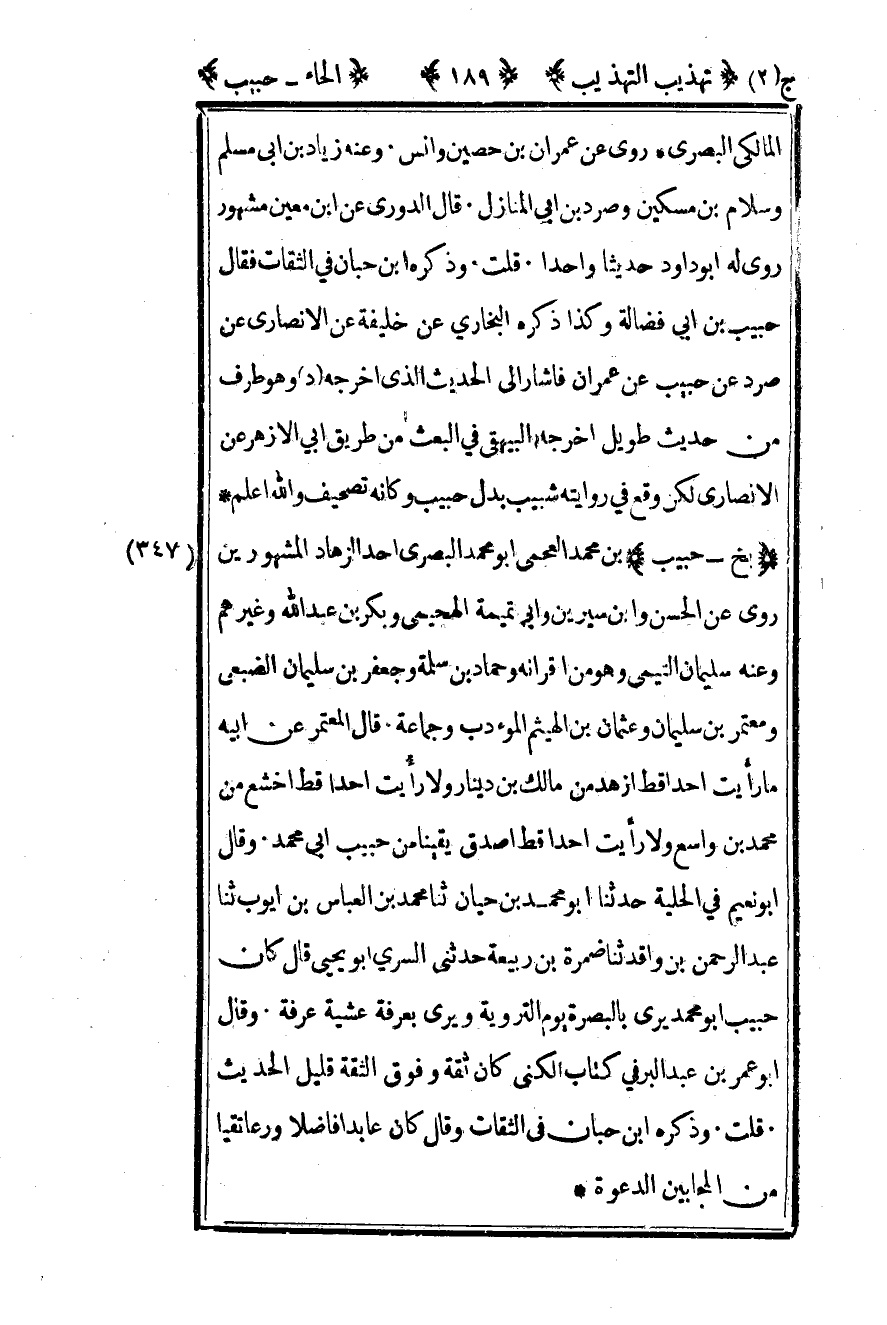 ج(٢) ﴿ تهذيب التهذيب ﴾ ﴿ ١٨٩ ﴾ ﴿ الحاء ـ حبيب ﴾
المالكى البصرى * روى عن عمران بن حصين وانس ٠ وعنه زياد بن ابى مسلم
وسلام بن مسكين وصرد بن ابي المنازل ٠ قال الدورى عن ابن معين مشهور
روى له ابو داود حديثا واحدا ٠ قلت ٠ وذكره ابن حبان في الثقات فقال
حبيب بن ابي فضالة وكذا ذكره البخاري عن خليفة عن الانصارى عن
صرد عن حبيب عن عمران فاشار الى الحديث الذى اخرجه (د) وهو طرف
من حديث طويل اخرجه البيهقى في البعث من طريق ابي الازهر عن
الانصارى لكن وقع في روايته شبيب بدل حبيب وكانه تصحيف والله اعلم *
﴿ بخ ـ حبيب ﴾ بن محمد العجمى ابو محمد البصرى احد الزهاد المشهورين (٣٤٧)
روى عن الحسن وابن سيرين وابي تميمة الهجيمى وبكر بن عبد الله وغيرهم
وعنه سليمان التيمى وهو من اقرانه وحماد بن سلمة وجعفر بن سليمان الضبعى
ومعتمر بن سليمان وعثمان بن الهيثم الموءدب وجماعة ٠ قال المعتمر عن ابيه
ما رأيت احدا قط ازهد من مالك بن دينار ولا رأيت احدا قط اخشع من
محمد بن واسع ولا رأيت احدا قط اصدق يقينا من حبيب ابي محمد ٠ وقال
ابو نعيم في الحلية حدثنا ابو محمد بن حيان ثنا محمد بن العباس بن ايوب ثنا
عبد الرحمن بن واقد ثنا ضمرة بن ربيعة حدثنى السري ابو يحيى قال كان
حبيب ابو محمد يرى بالبصرة يوم التروية ويرى بعرفة عشية عرفة ٠ وقال
ابو عمر بن عبد البر في كتاب الكنى كان ثقة وفوق الثقة قليل الحديث
٠ قلت ٠ وذكره ابن حبان فى الثقات وقال كان عابدا فاضلا ورعا تقيا
من المجابين الدعوة *